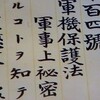 百四號
軍機保護法
軍事上祕密
ルコトヲ知テ